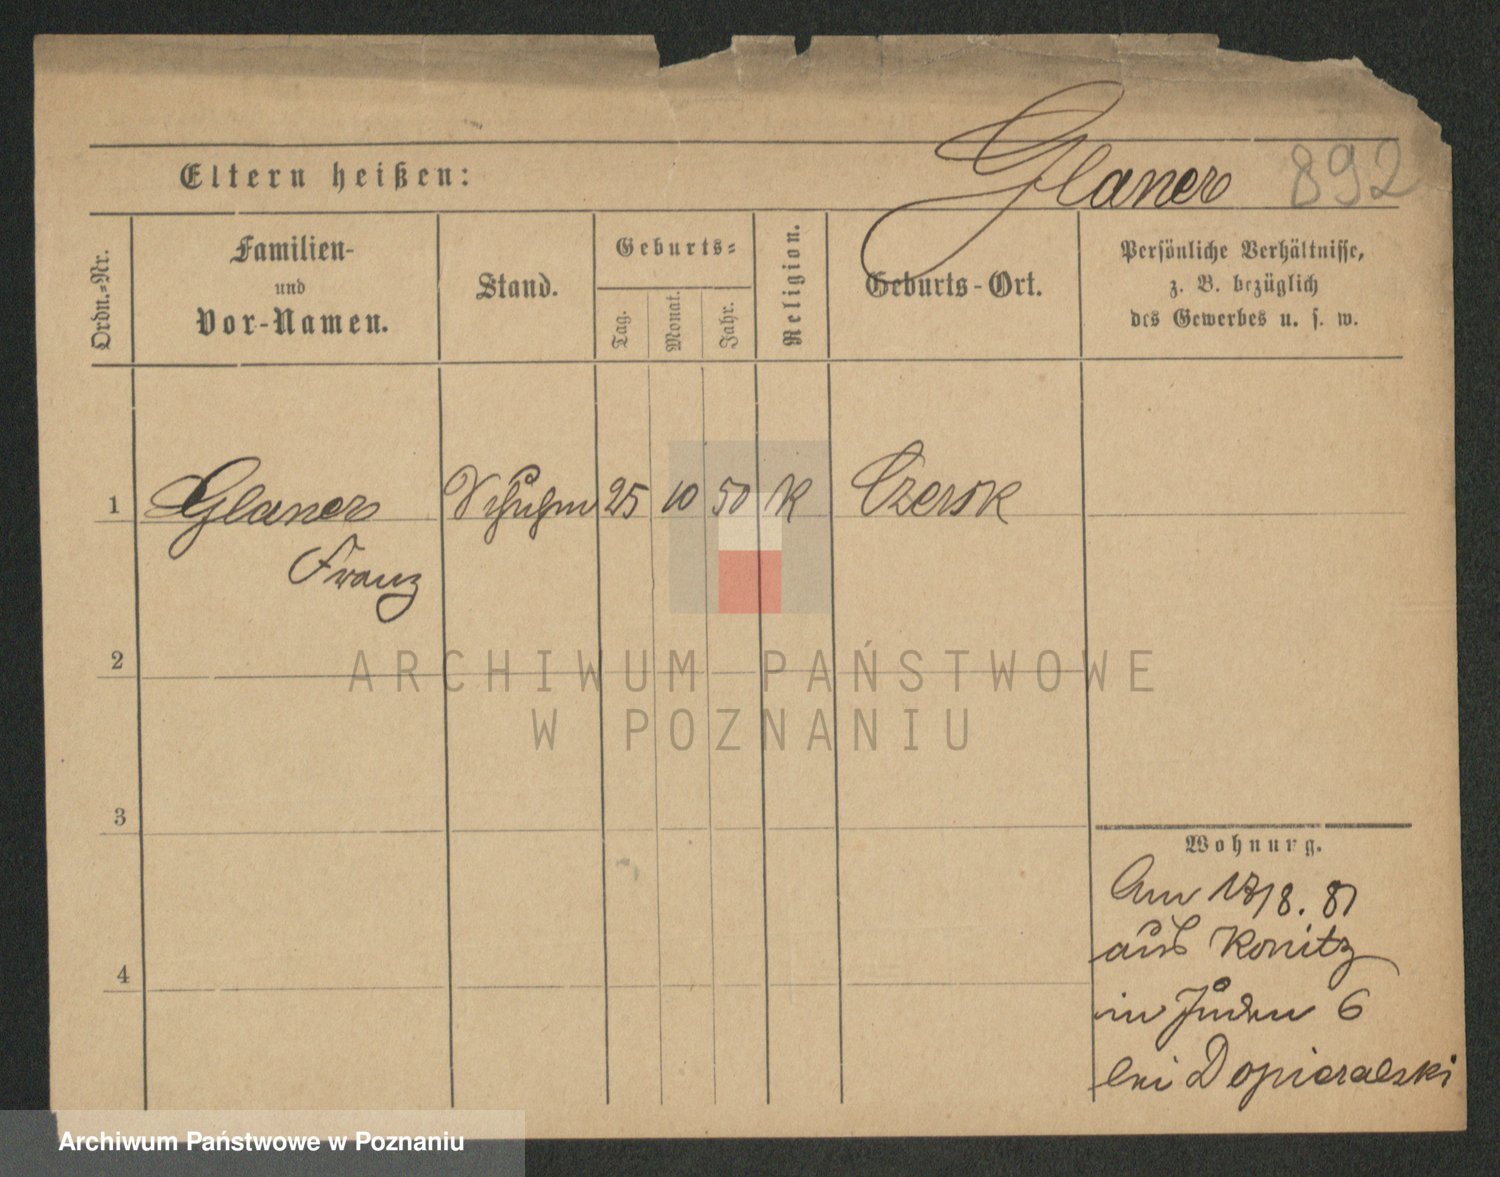 Glaner 892
Eltern heißen:
Ordn.-Nr.
Familien-
und
Vor-Namen.
Stand.
Geburts-
Tag.
Monat.
Jahr.
Religion.
Geburts-Ort.
Persönliche Verhältnisse,
z. B. bezüglich
des Gewerbes u. s. w.
1 Glaner Schuhm 25 10 50 K Czersk
Franz
2
3
4
Wohnung.
Am 18/8. 81
aus Konitz
in Juden 6
bei Dopieralski
ARCHIWUM PAŃSTWOWE
W POZNANIU
Archiwum Państwowe w Poznaniu